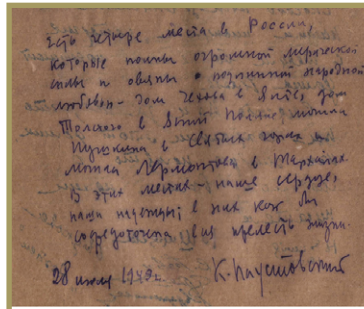 Есть четыре места в России,
которые полны огромной лирической
силы и овеяны подлинной народной
любовью – дом Чехова в Ялте, дом
Толстого в Ясной Поляне, могила
Пушкина в Святых горах и
могила Лермонтова в Тарханах.
В этих местах – наше сердце,
наши надежды, в них как бы
сосредоточена вся прелесть жизни.
28 июля 1949г. К. Паустовский